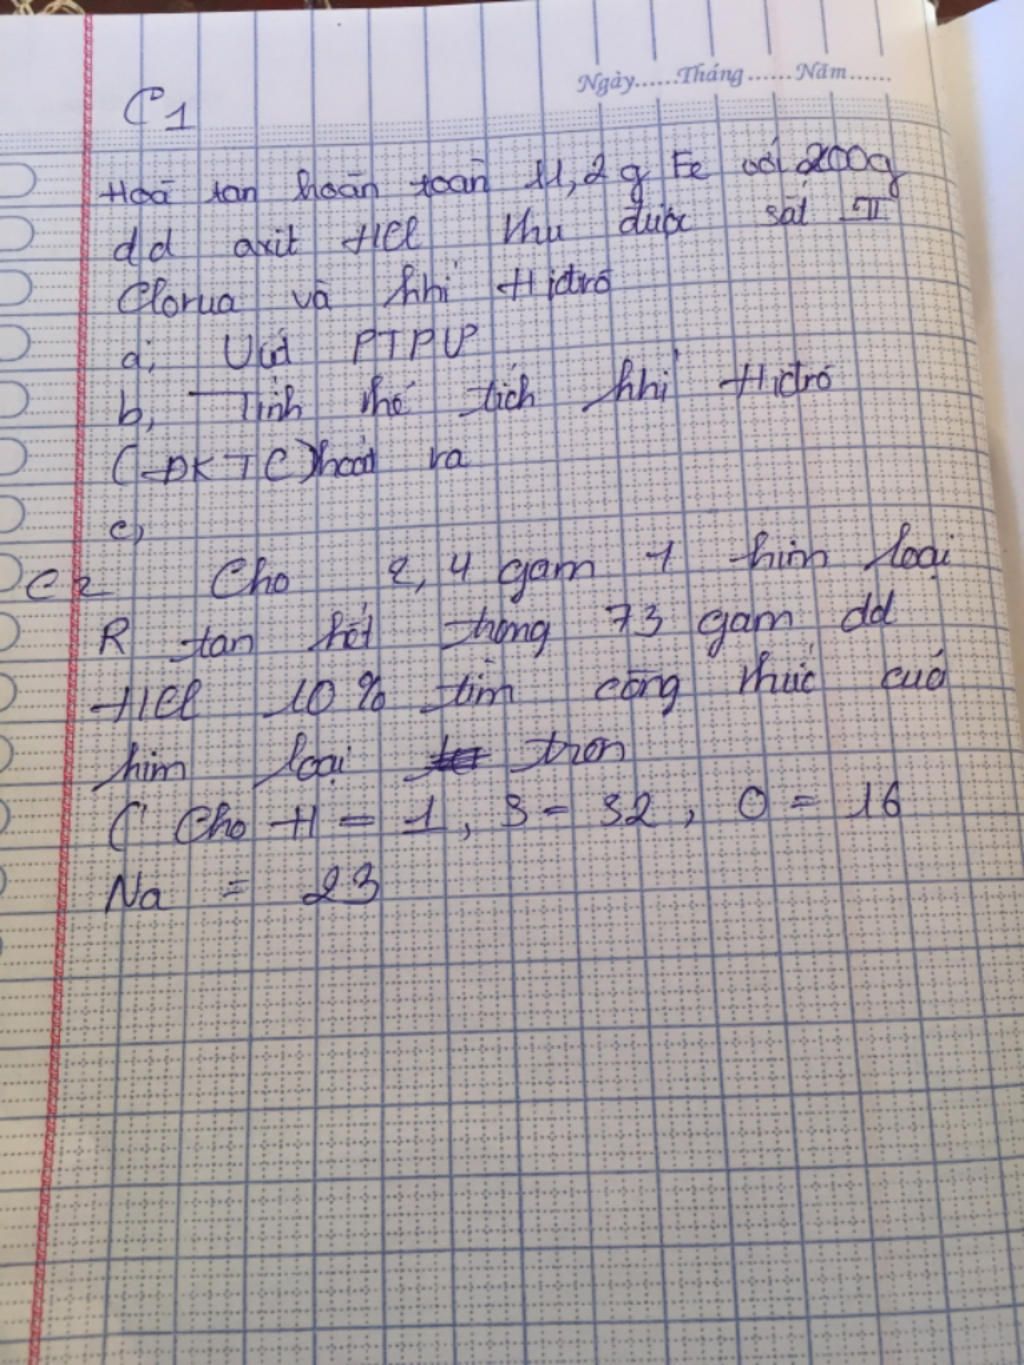 Ngày......Tháng......Năm......
C1
Hoà tan hoàn toàn 11,2 g Fe với 200g
dd axit HCl thu được sắt II
Clorua và khí Hiđrô
a, Viết PTPƯ
b, Tính thể tích khí Hiđrô
(ĐKTC) thoát ra
c,
C2 Cho 2,4 gam 1 kim loại
R tan hết trong 73 gam dd
HCl 10% tìm công thức của
kim loại tren
( Cho H = 1, S = 32, O = 16
Na = 23